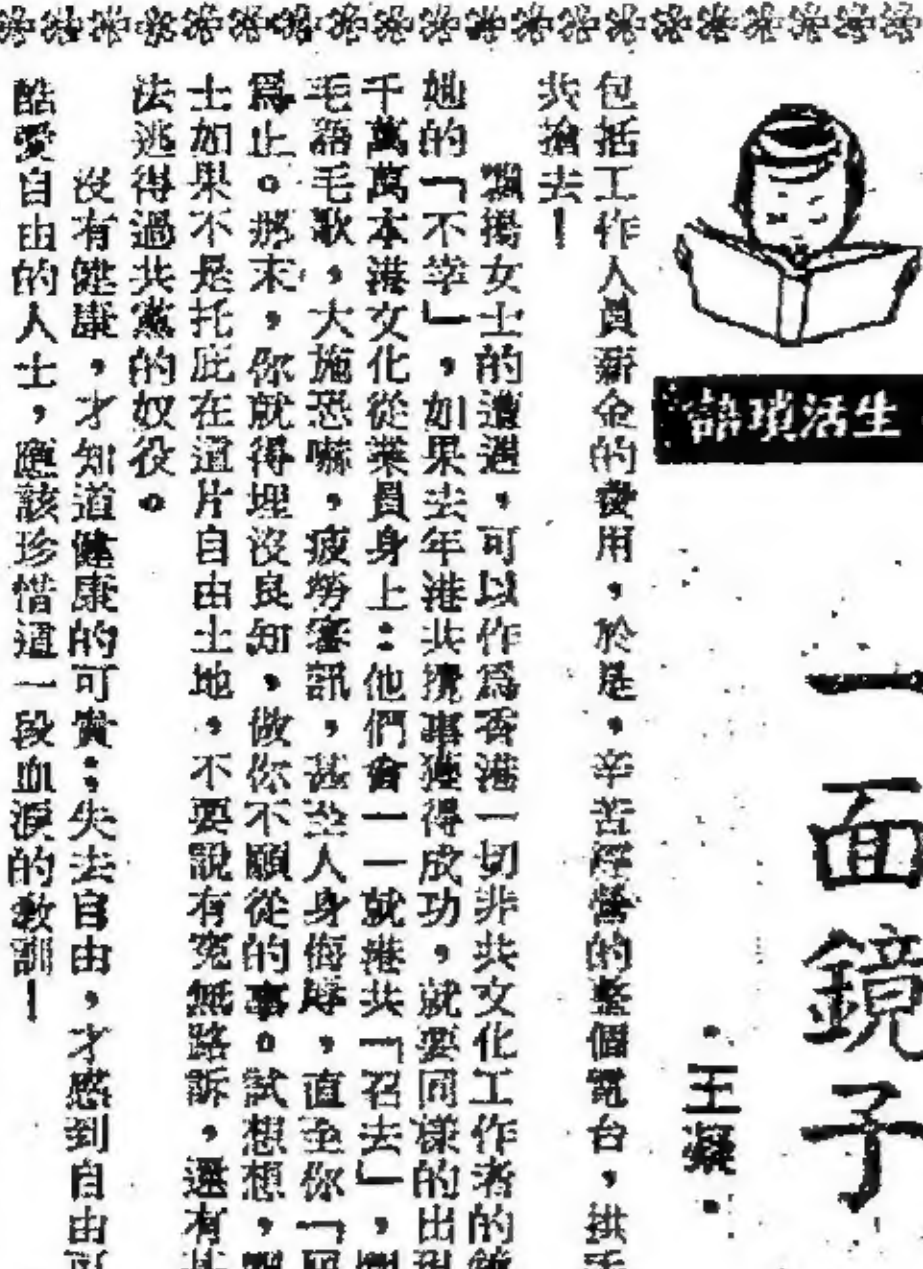 生活瑣語
一面鏡子
・王凝・
包括工作人員薪金的費用，於是，辛苦經營的整個電台，拱手
共搶去！
飄揚女士的遭遇，可以作爲香港一切非共文化工作者的
她的「不幸」，如果去年港共攪事獲得成功，就要同樣的出現
千萬萬本港文化從業員身上：他們會一一就港共「召去」，
毛語毛歌，大施恐嚇，疲勞審訊，甚至人身侮辱，直至你「
爲止。那末，你就得埋沒良知，做你不願從的事。試想想，
士如果不是托庇在這片自由土地，不要說有冤無路訴，還有
法逃得過共黨的奴役。
沒有健康，才知道健康的可貴；失去自由，才感到自由可
酷愛自由的人士，應該珍惜這一段血淚的教訓！